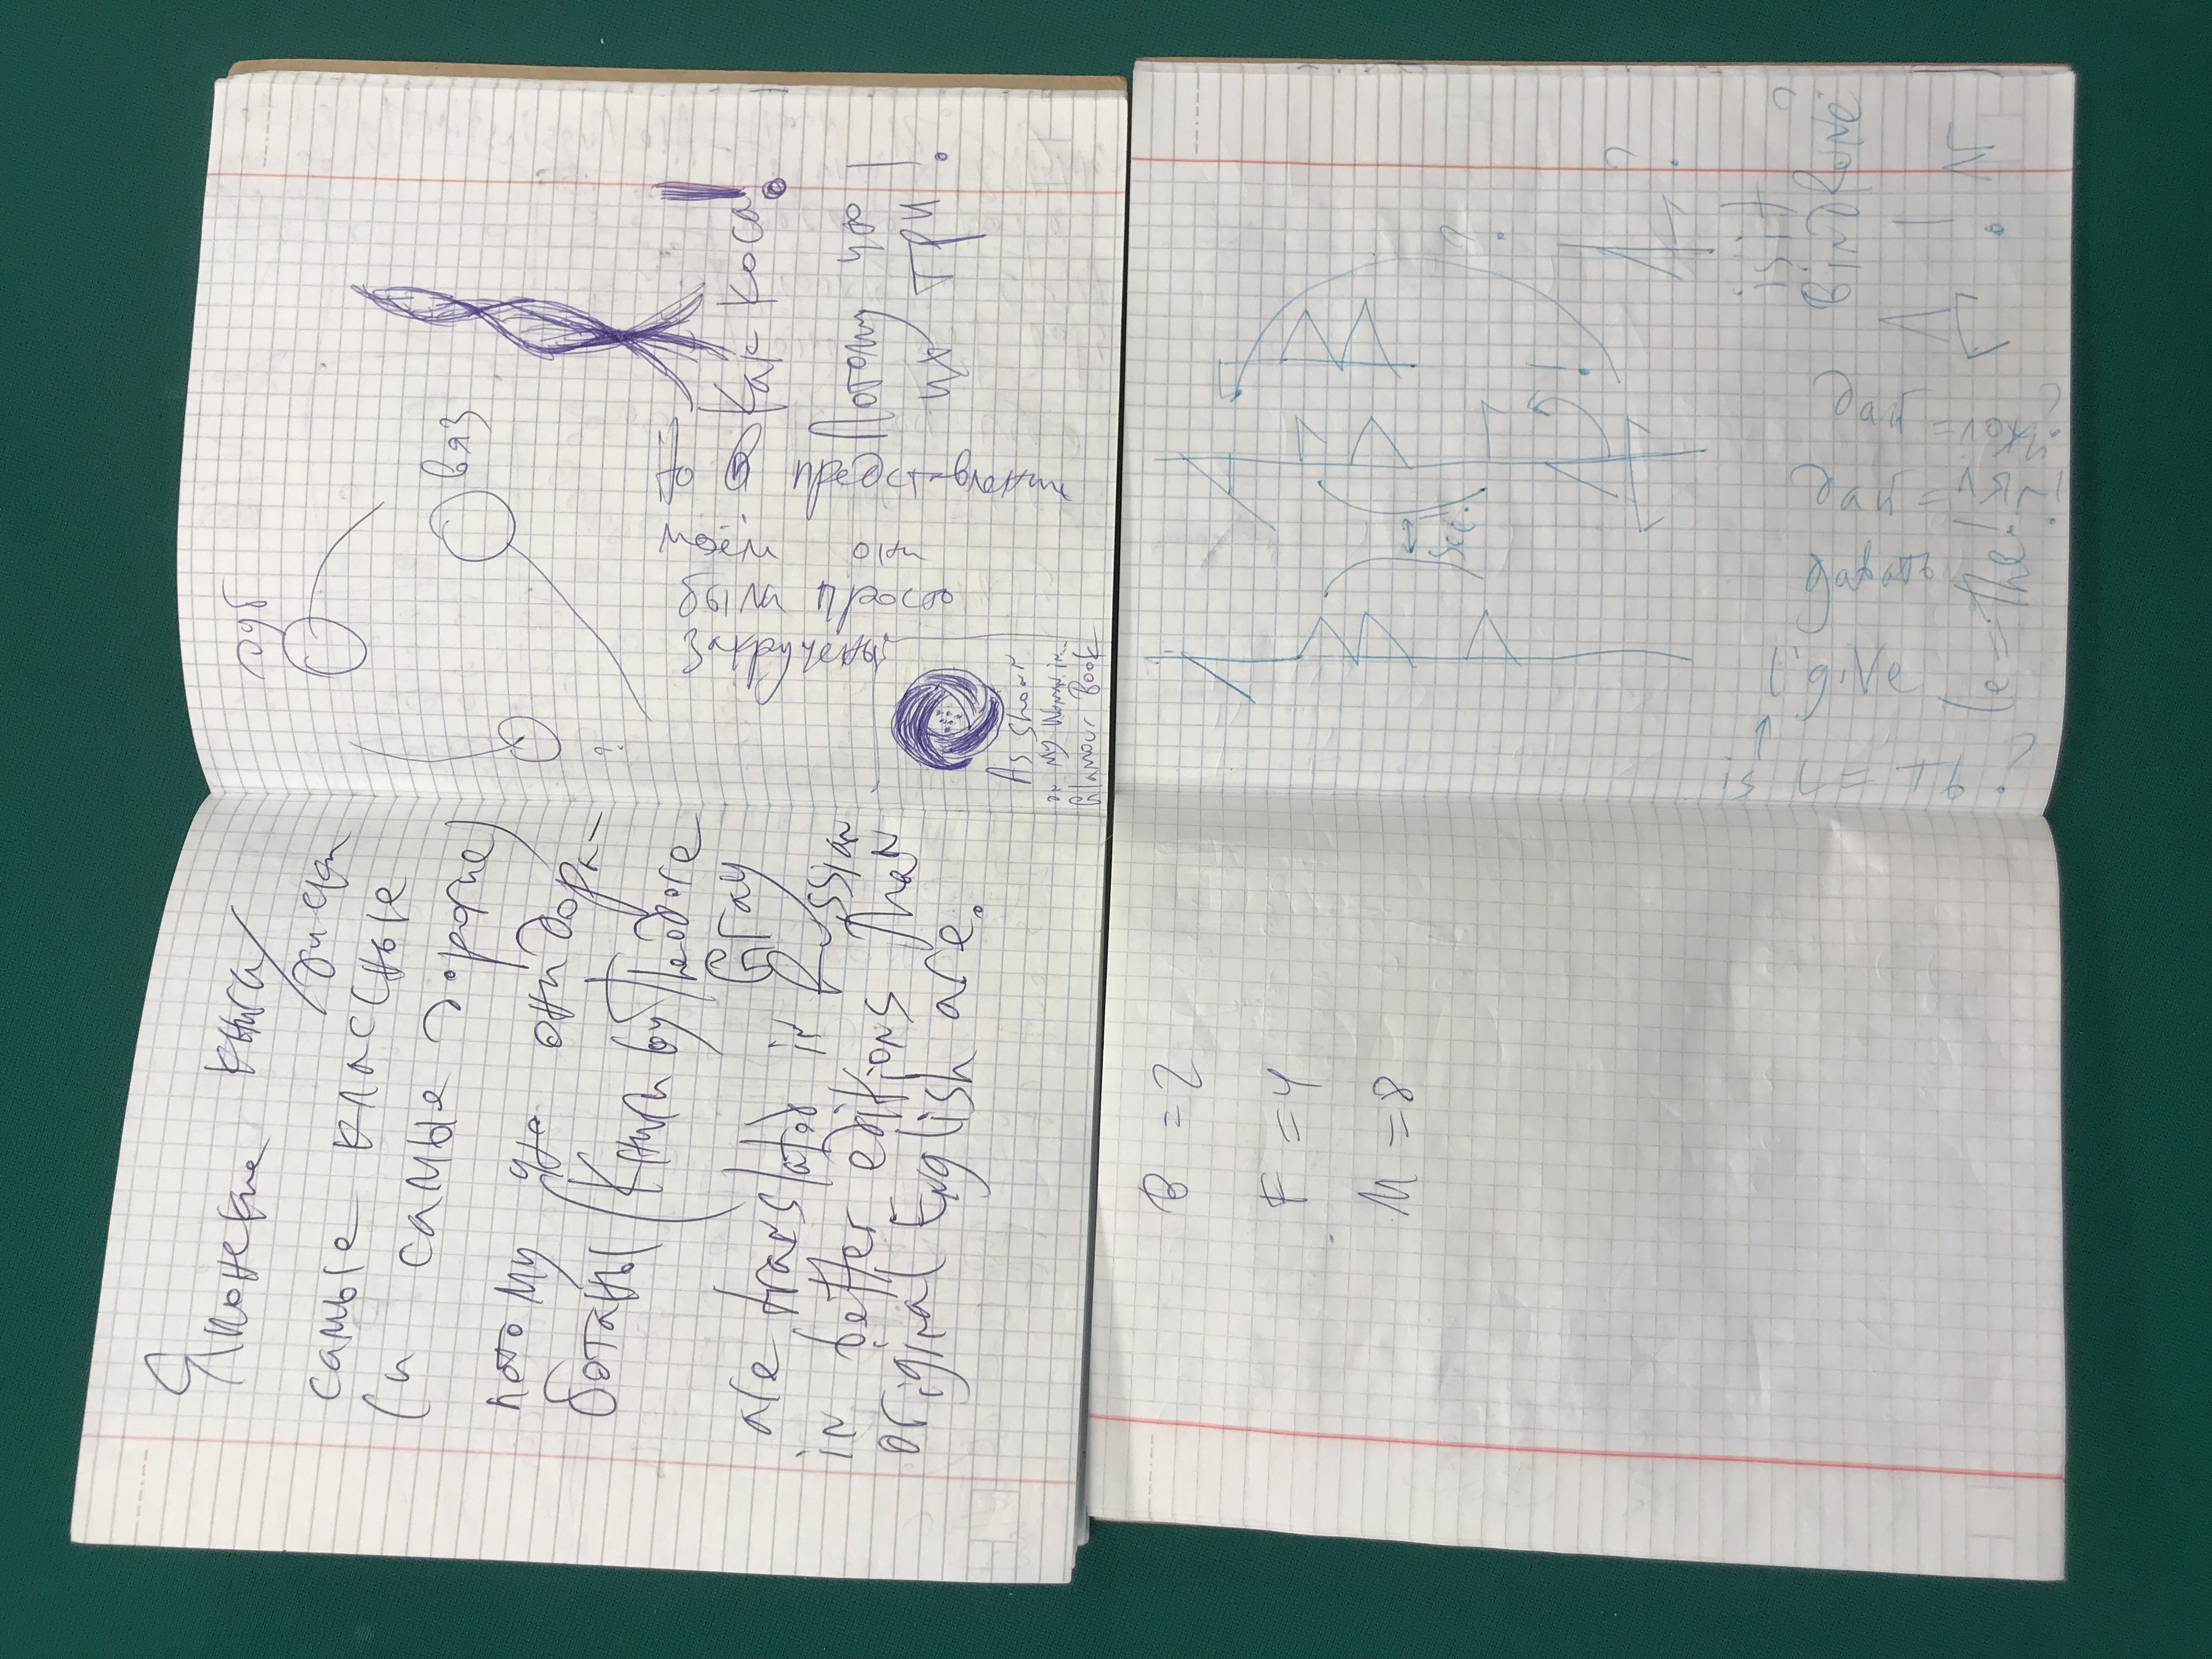 Японские книги/
диски
самые классные
(и самые дорогие)
потому что они дора-
ботаны (Книги by Theodore
Gray
are translated in Russian
in better editions than
original English are.
дуб
вяз
?
Как коса!
Потому что
их три!
Но в представлении
моём они
были просто
закручены
As shown
on my
Glamour Book
B = 2
F = 4
M = 8
?
!
?
is it
BINDRUNE?
дай =
дай =
давать
give
is = ть?
(e = the!